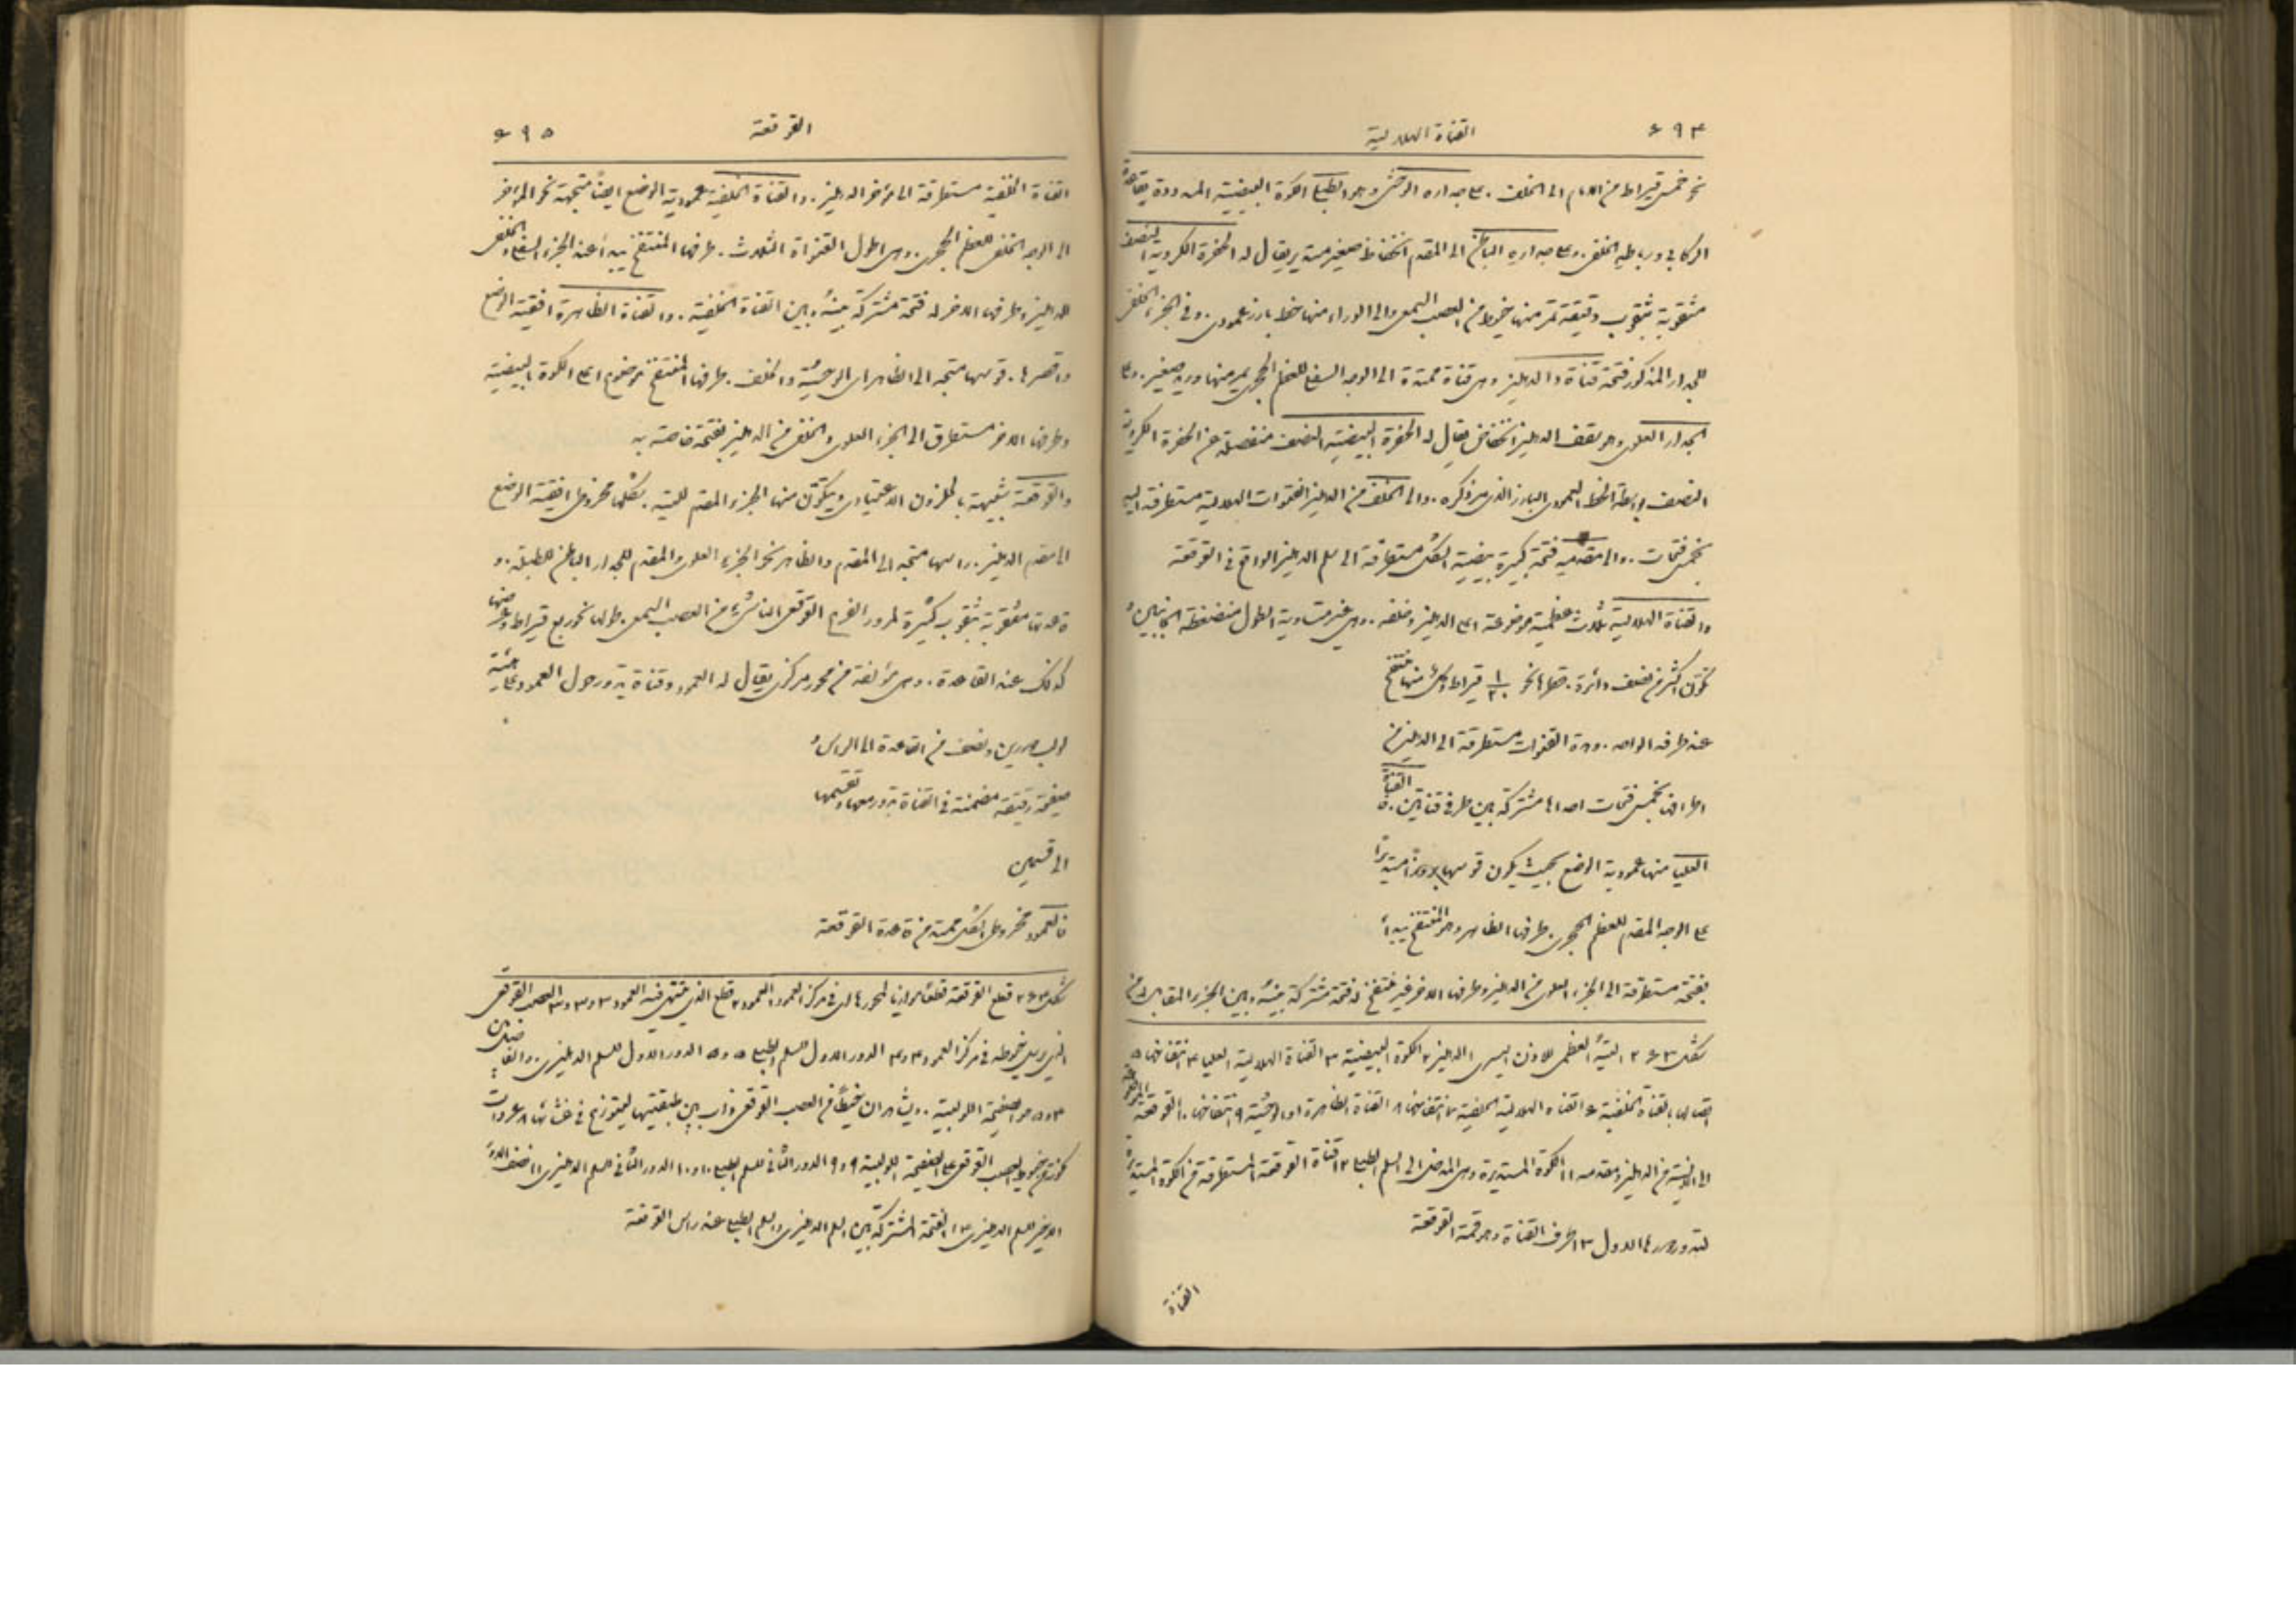 ٤٩٤ القناة الهلالية
نحو خمس قيراط من الامام الى الخلف . على جداره الوحشي وهو الطبلي الكوة البيضية المسدودة بقاعدة
الركابي ورباطه الحلقي . وعلى جداره الباطن الى المقدم انخفاض صغير مستدير يقال له الحفرة الكروية النصف
مثقوبة بثقوب دقيقة تمر منها خيوط من العصب السمعي والى الوراء منها خط بارز عمودي . وفي الجزء الخلفي
للجدار المذكور فتحة قناة والدهليز وهي قناة ممتدة الى الوجه السفلي للعظم الحجري يمر منها وريد صغير . وعلى
الجدار العلوي وهو سقف الدهليز انخفاض يقال له الحفرة البيضية النصف منفصلة عن الحفرة الكروية
النصف بواسطة الخط العمودي البارز الذي مر ذكره . والى الخلف من الدهليز القنوات الهلالية مستطرقة اليه
بخمس فتحات . والى مقدمه فتحة كبيرة بيضية الشكل مستطرقة الى سلم الدهليز الواقع في القوقعة
والقناة الهلالية ثلاث عظمية موضوعة اعلى الدهليز وخلفه . وهي غير متساوية الطول منضغطة الجانبين
تكون اكثر من نصف دائرة . قطرها نحو ١/٢٠ قيراط وكل منها منتفخ
عند طرفه الواحد . وهذه القنوات مستطرقة الى الدهليز من
اطرافها بخمس فتحات احداها مشتركة بين طرفي قناتين . فالقناة
العليا منها عمودية الوضع بحيث يكون قوسها بروزا مستديرا
على الوجه المقدم للعظم الحجري . طرفها الظاهر وهو المنتفخ يبدأ
بفتحة مستطرقة الى الجزء العلوي من الدهليز وطرفها الاخر غير منتفخ له فتحة مشتركة بينه وبين الجزء المقابل من
شكل ٢٤٣ التيه العظمي للاذن اليسرى ١ الدهليز ٢ الكوة البيضية ٣ القناة الهلالية العليا ٤ انتفاخها ٥
اتصالها بالقناة الخلفية ٦ القناة الهلالية الخلفية ٧ انتفاخها ٨ القناة الظاهرة او الوحشية ٩ انتفاخها ١٠ القوقعة
الى الانسية من الدهليز ومقدمه ١١ الكوة المستديرة وهي المدخل الى السلم الطبلي ١٢ قناة القوقعة المستطرقة من الكوة المستديرة
لتدور دورها الاول ١٣ طرف القناة وهو قمة القوقعة
القناة
القوقعة ٤٩٥
القناة الخلفية مستطرقة الى مؤخر الدهليز . والقناة الخلفية عمودية الوضع ايضا متجهة نحو المؤخر
الى الوجه الخلفي للعظم الحجري . وهي اطول القنوات الثلاث . طرفها المنتفخ يبدأ عند الجزء السفلي والخلفي
للدهليز وطرفها الاخر له فتحة مشتركة بينه وبين القناة الخلفية . والقناة الظاهرة افقية الوضع
واقصرها . قوسها متجه الى الظاهر اي الوحشية والخلف . طرفها المنتفخ موضوع اعلى الكوة البيضية
وطرفها الاخر مستطرق الى الجزء العلوي والخلفي من الدهليز بفتحة خاصة به
والقوقعة شبيهة بالحلزون الاعتيادي ويتكون منها الجزء المقدم للتيه . شكلها مخروطي افقية الوضع
الى مقدم الدهليز . راسها متجه الى المقدم والظاهر نحو الجزء العلوي والمقدم للجدار الباطن للطبلة . و
قاعدتها مثقوبة بثقوب كثيرة لمرور الفرع القوقعي الناشئ من العصب السمعي . طولها نحو ربع قيراط وعرضها
كذلك عند القاعدة . وهي مؤلفة من محور مركزي يقال له العمود وقناة تدور حول العمود على هيئة
لولب دورين ونصف من القاعدة الى الراس و
صفيحة رقيقة متضمنة في القناة تدور معها وتقسمها
الى قسمين
فالعمود مخروطي الشكل ممتد من قاعدة القوقعة
شكل ٢٤٣ قطع القوقعة قطعا موازيا لمحورها اي في مركز العمود ١ العمود ٢ قطع الذي ينتهي فيه العمود ٣ و٣ و٣ العصب القوقعي
الذي يرسل خيوطه في مركز العمود ٤ و٤ الدور الاول للسلم الطبلي ٥ و٥ الدور الاول للسلم الدهليزي . والفاصل بين
٤ و٥ هو الصفيحة اللولبية . ويشاهد ان خيطا من العصب القوقعي ذاهب بين طبقتيها ليتوزع في غشائها ٨ عروات
توزيع خيوط العصب القوقعي على الصفيحة اللولبية ٩ و٩ الدور الثاني للسلم الطبلي ١٠ و١٠ الدور الثاني للسلم الدهليزي ١١ نصف الدور
الاخير للسلم الدهليزي ١٢ الفتحة المشتركة بين السلم الدهليزي والسلم الطبلي عند راس القوقعة